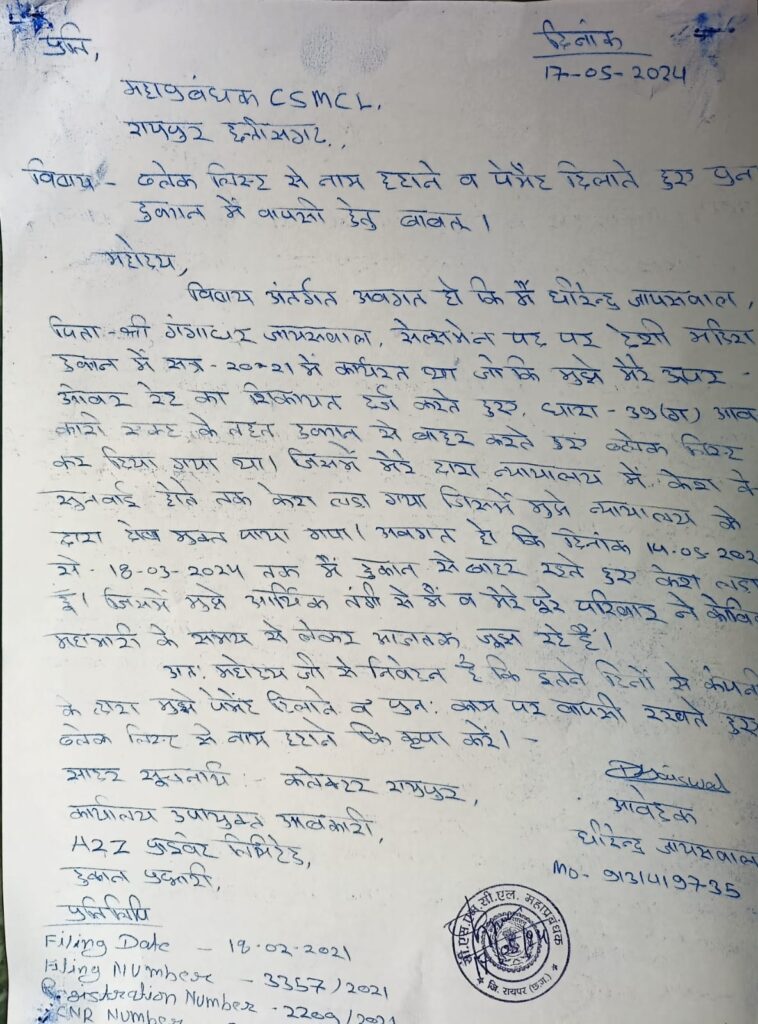 प्रति,
दिनांक
17-05-2024
महाप्रबंधक CSMCL,
रायपुर छत्तीसगढ़,
विषय - ब्लेक लिस्ट से नाम हटाने व पेमेंट दिलाते हुए पुन
दुकान में वापसी हेतु बाबत।
महोदय,
विषय अंतर्गत अवगत हो कि मैं धीरेन्द्र जायसवाल,
पिता - श्री गंगाधर जायसवाल, सेल्समेन पद पर देशी मदिरा
दुकान में सत्र - 20-21 में कार्यरत था जो कि मुझे मेरे ऊपर -
ओवर रेट का शिकायत दर्ज करते हुए, धारा - 39(ग) आब
कारी एक्ट के तहत दुकान से बाहर करते हुए ब्लेक लिस्ट
कर दिया गया था। जिसमें मेरे द्वारा न्यायालय में केश के
सुनवाई होते तक केश लडा गया जिसमें मुझे न्यायालय के
द्वारा दोष मुक्त पाया गया। अवगत हो कि दिनांक 14.05.202
से - 18-03-2024 तक मैं दुकान से बाहर रहते हुए केश लडा
हूँ। जिसमें मुझे आर्थिक तंगी से मैं व मेरे पुरे परिवार ने कोविड
महामारी के समय से लेकर आजतक जुझ रहे हैं।
अतः महोदय जी से निवेदन है कि इतने दिनों से कंपनी
के द्वारा मुझे पेमेंट दिलाते व पुनः काम पर वापसी रखते हुए
ब्लेक लिस्ट से नाम हटाने कि कृपा करें। -
सादर सूचनार्थ :- कलेक्टर रायपुर,
कार्यालय उपायुक्त आबकारी,
A2Z प्राइवेट लिमिटेड,
दुकान प्रभारी,
Jaiswal
आवेदक
धीरेन्द्र जायसवाल
MO- 9131419735
प्रतिलिपि
Filing Date - 18-02-2021
Filing Number - 3357/2021
Registration Number - 2209/2021
CNR Number
सी.एस.एम.सी.एल. महाप्रबंधक
जि. रायपुर (छ.ग.)